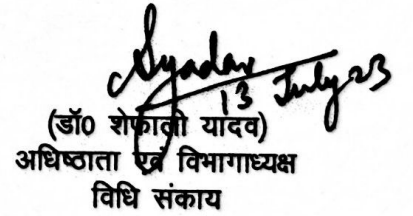 Syadav
13 July 23
(डॉ0 शेफाली यादव)
अधिष्ठाता एवं विभागाध्यक्ष
विधि संकाय